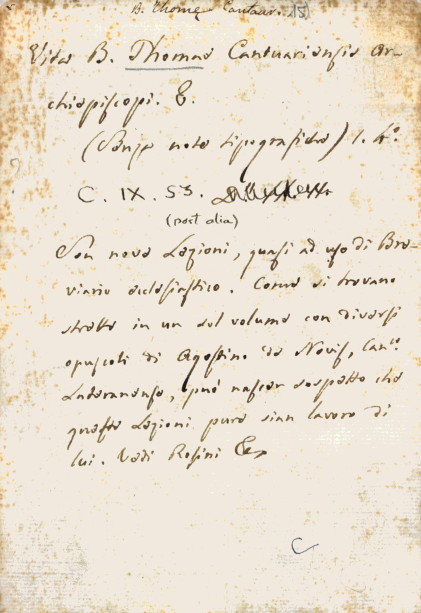 B. Thomę Cantuar. 15
Vita B. Thomae Cantuariensis Ar-
chiepiscopi. &.
(Senza nota tipografica) 1. 4.º
C. IX. 53.
(post alia)
Son nove Lezioni, quasi ad uso di Bre-
viario ecclesiastico. Come si trovano
strette in un sol volume con diversi
opuscoli di Agostino de Novis, Can.co
Lateranense, può nascer sospetto che
queste Lezioni pure sian lavoro di
lui. Vedi Rosini &
C